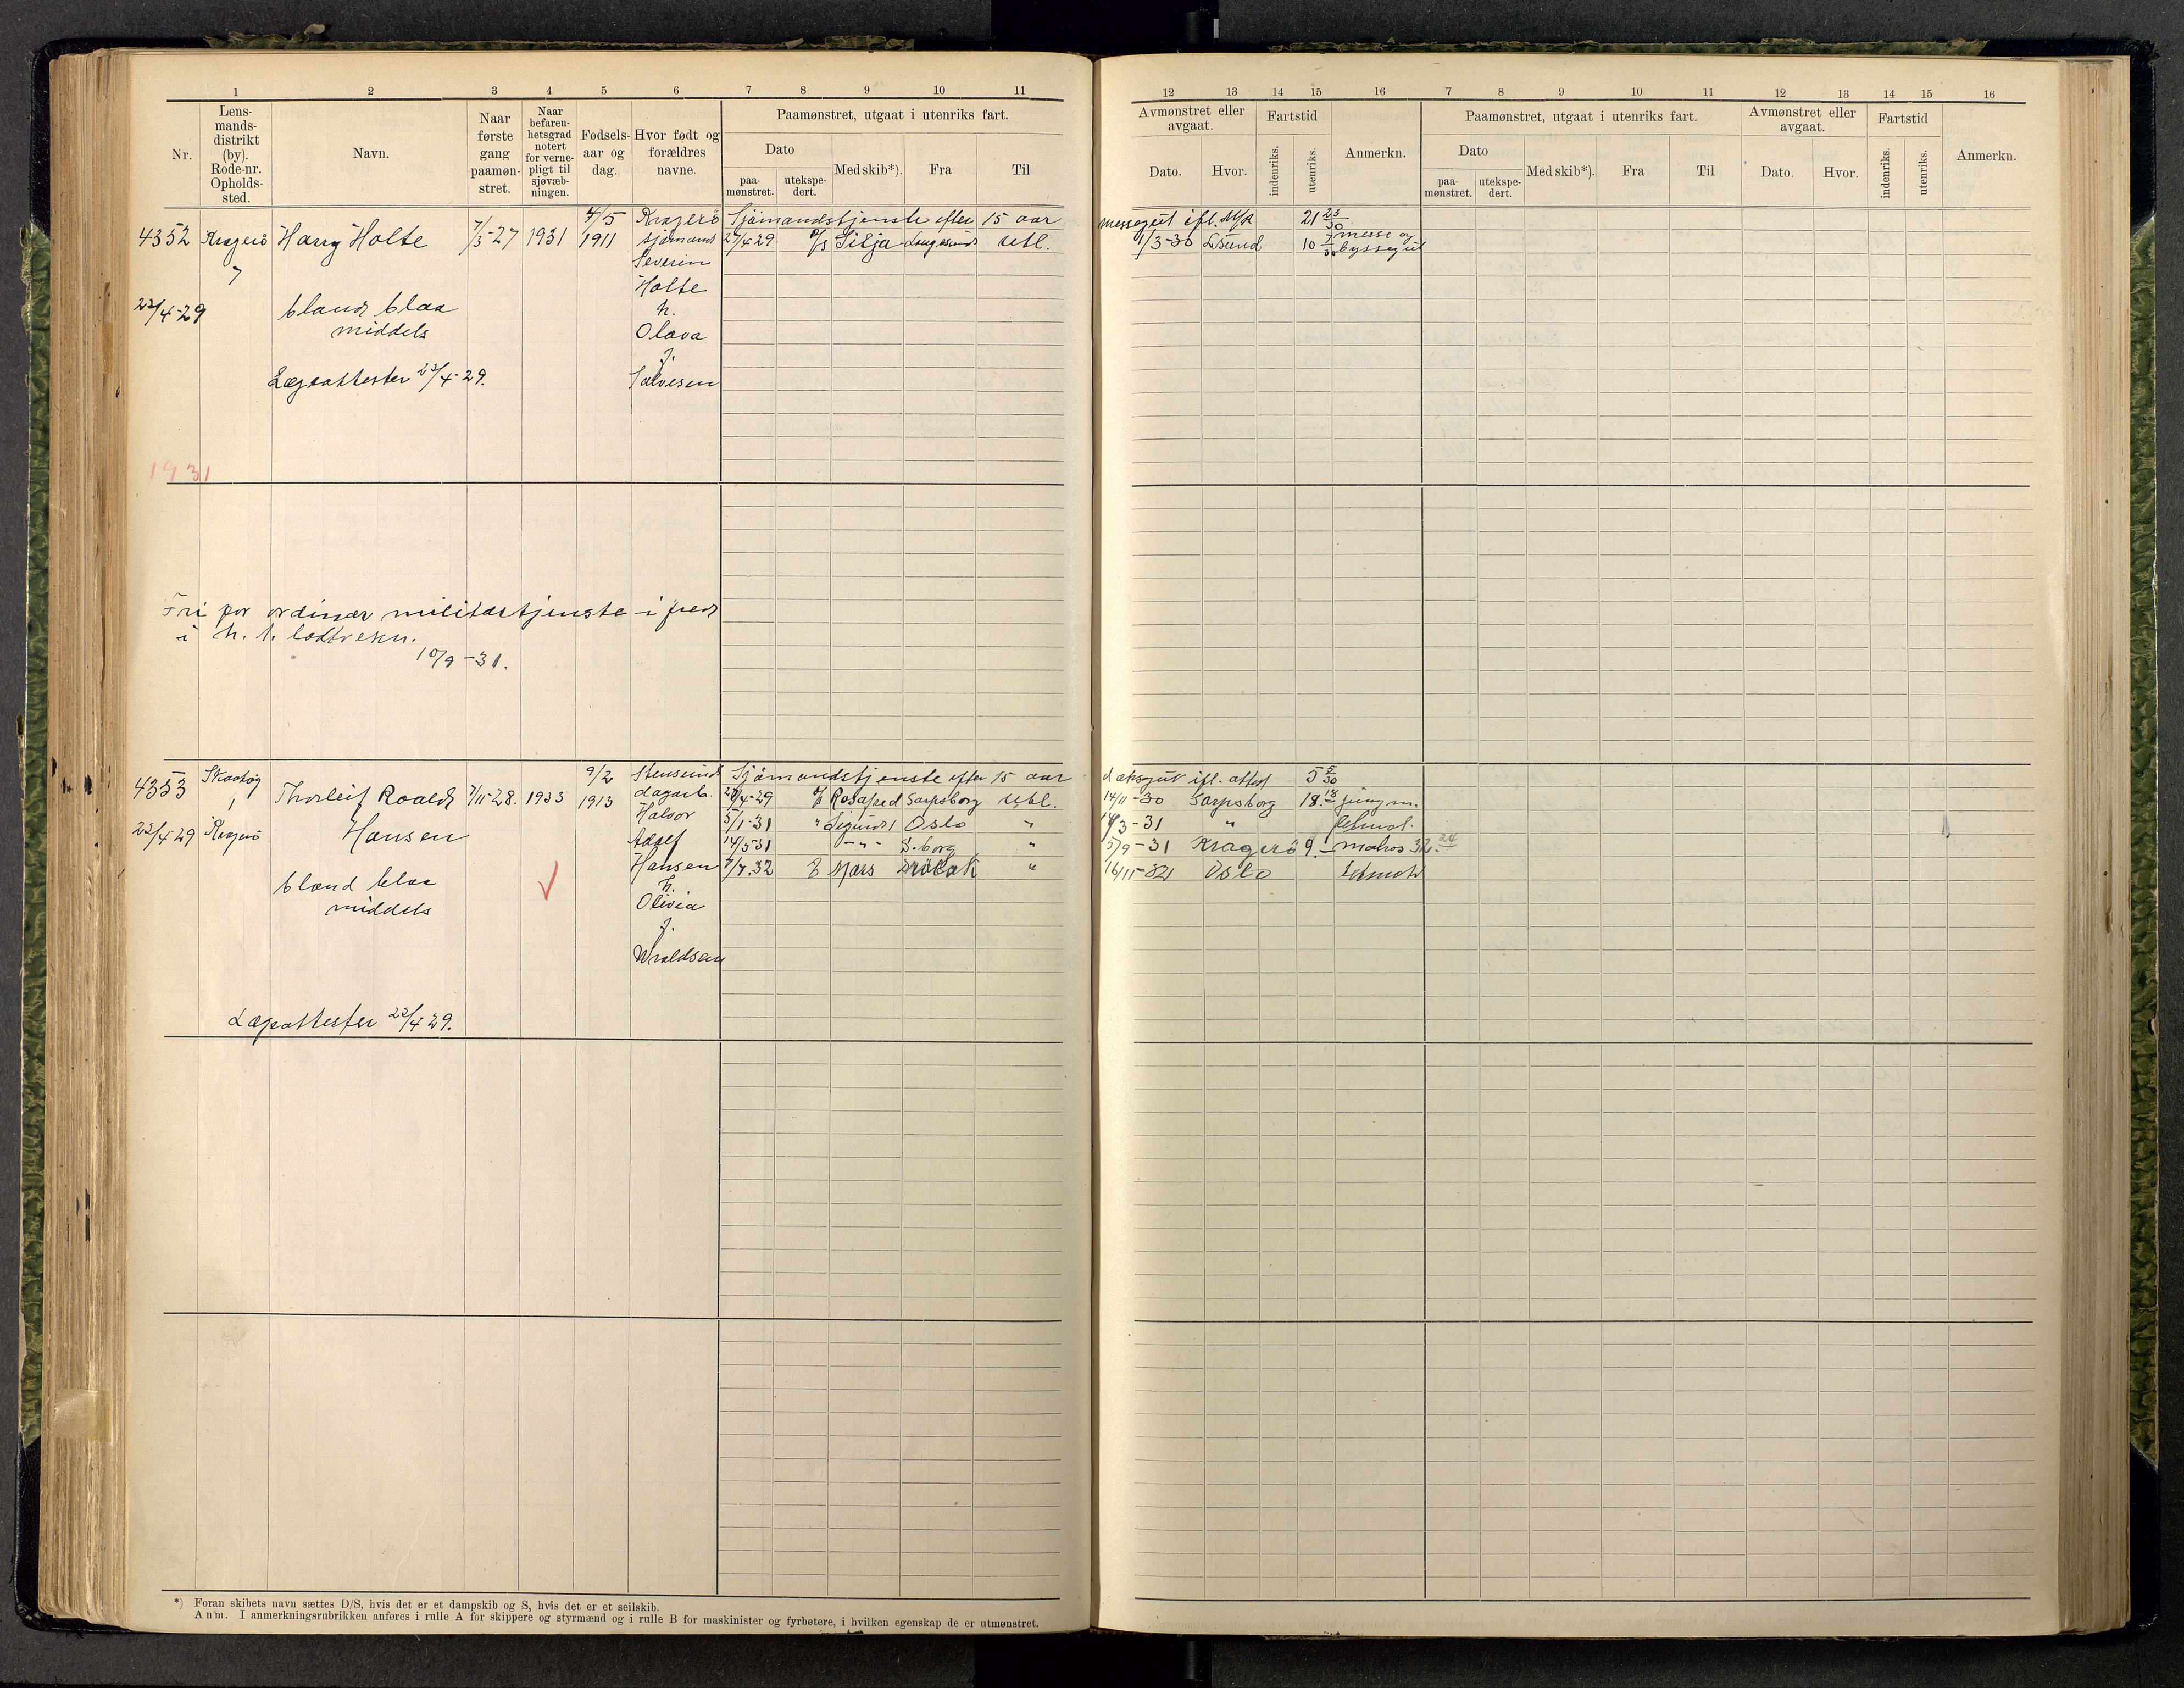 1 2 3 4 5 6 7 8 9 10 11
Nr.
Lens-
mands-
distrikt
(by).
Rode-nr.
Opholds-
sted.
Navn.
Naar
første
gang
paamøn-
stret.
Naar
befaren-
hetsgrad
notert
for verne-
pligt til
sjøvæb-
ningen.
Fødsels-
aar og
dag.
Hvor født og
forældres
navne.
Paamønstret, utgaat i utenriks fart.
Dato
paa-
mønstret.
utekspe-
dert.
Med skib*).
Fra
Til
4352 Kragerö Harry Holte 7/3-27 1931 4/5 1911
7
23/4-29
bland blaa
middels
Lægeattester 23/4-29.
1931
Kragerö
sjömand
Severin
Holte
h.
Olava
f.
Salvesen
Sjömandstjenste efter 15 aar
27/4-29 D/S Silja Langesund Utl.
Fri for ordinær militærtjenste i fred
i h. t. loddtrekn.
10/9-31.
4353 Skaatøy Thorleif Roald 7/11-28. 1933 9/2 1913
1
23/4-29 Kragerö Hansen
bland blaa
middels
Lægeattester 23/4 29.
Stensund
dagarb.
Halvor
Adolf
Hansen
h.
Olivia
f.
Wroldsen
Sjömandstjenste efter 15 aar
27/4-29 Rosafred Sarpsborg Utl.
5/1-31 " Sigurds 1 Oslo "
14/5-31 -"- S.borg "
7/7.32 Mars Dröbak "
*) Foran skibets navn sættes D/S, hvis det er et dampskib og S, hvis det er et seilskib.
Anm. I anmerkningsrubrikken anføres i rulle A for skippere og styrmænd og i rulle B for maskinister og fyrbøtere, i hvilken egenskap de er utmønstret.
12 13 14 15 16 7 8 9 10 11 12 13 14 15 16
Avmønstret eller
avgaat.
Dato.
Hvor.
Fartstid
indenriks.
utenriks.
Anmerkn.
Paamønstret, utgaat i utenriks fart.
Dato
paa-
mønstret.
utekspe-
dert.
Med skib*).
Fra
Til
Avmønstret eller
avgaat.
Dato.
Hvor.
Fartstid
indenriks.
utenriks.
Anmerkn.
messegut ifl. M/R 21 23/30
1/3-30 L.sund 10 7/30 messe og
byssegut
dæksgut ifl. attest 5 5/30
14/11-30 Sarpsborg 18. 18 jungm.
14/3-31 "
5/9-31 Kragerö 9.- matros 32. 24
16/11-32 Oslo